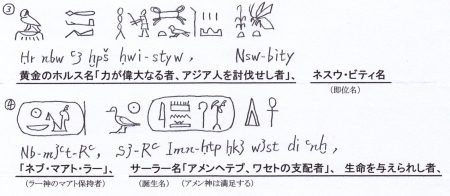 ③
Ḥr nbw ꜥꜣ ḫpš ḥwi-sṯyw, Nsw-bity
黄金のホルス名「力が偉大なる者、アジア人を討伐せし者」、 ネスウ・ビティ名
(即位名)
④
Nb-mꜣꜥt-Rꜥ, Sꜣ-Rꜥ Imn-ḥtp ḥḳꜣ wꜣst di ꜥnḫ,
「ネブ・マアト・ラー」、 サーラー名「アメンヘテプ、ワセトの支配者」、 生命を与えられし者、
(ラー神のマアト保持者) (誕生名) (アメン神は満足する)